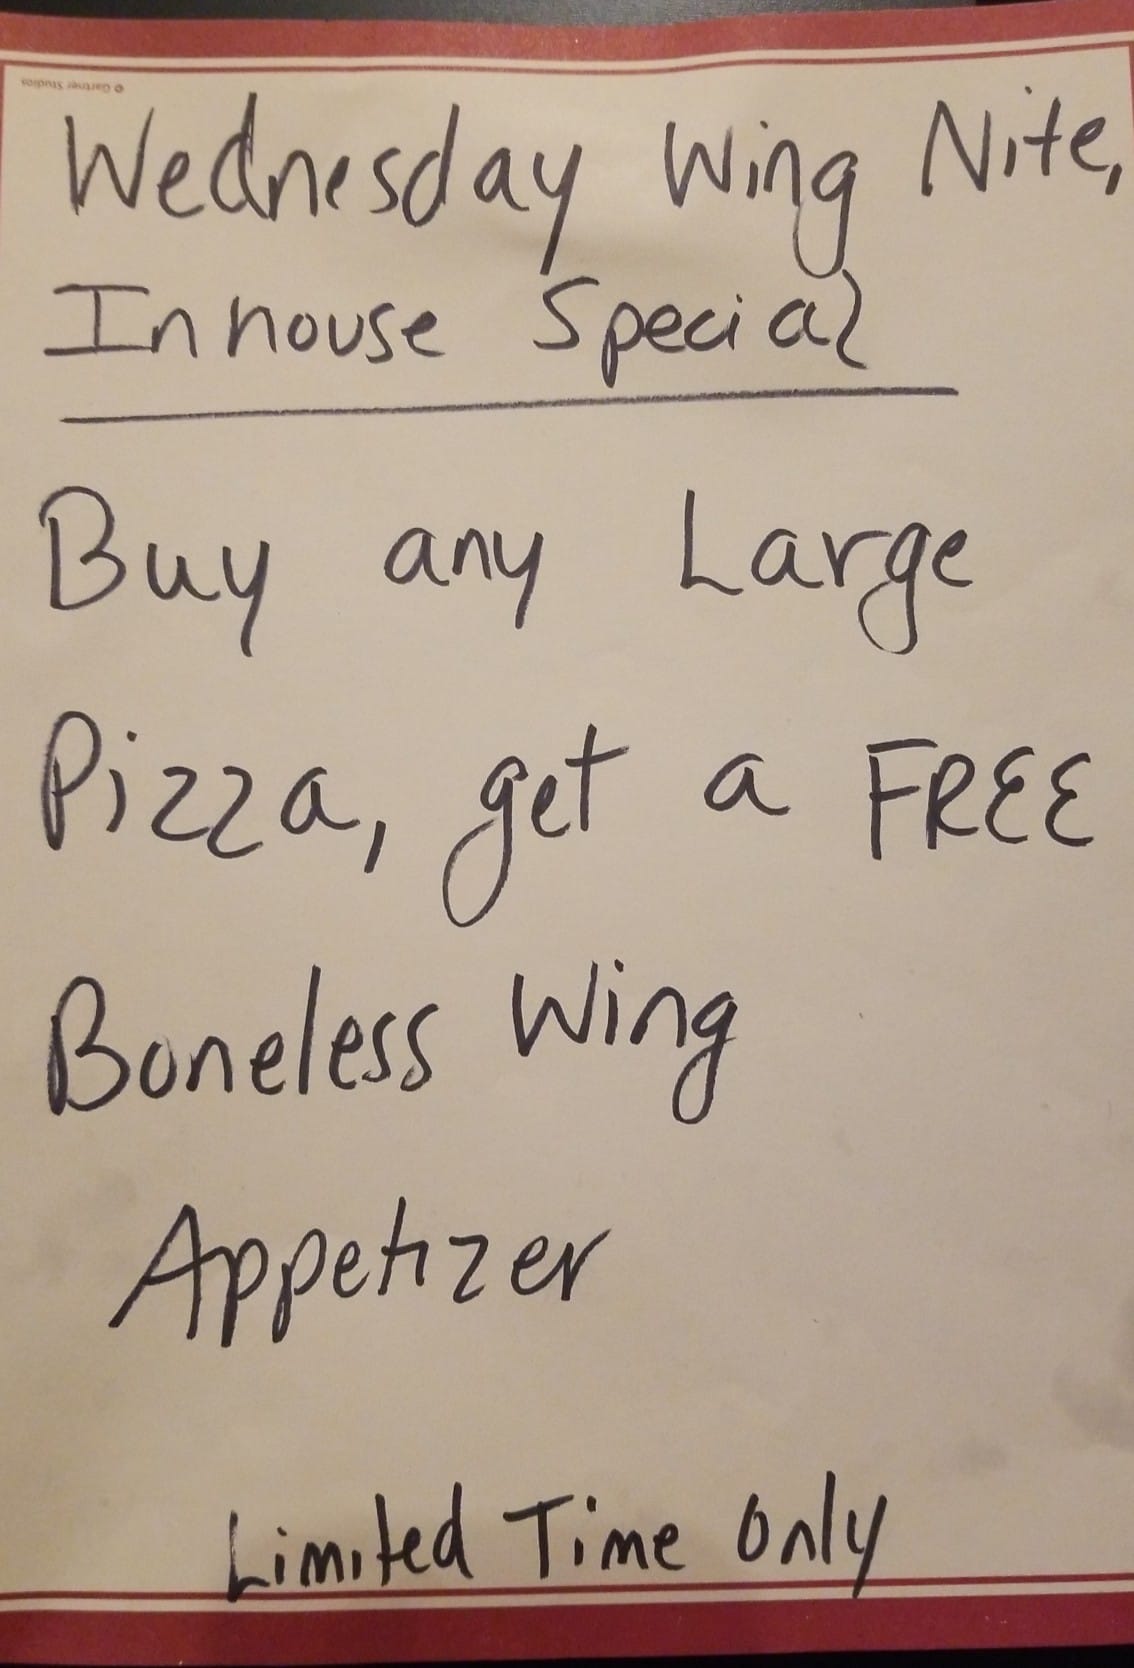 © Gartner Studios
Wednesday Wing Nite,
Inhouse Special
Buy any Large
Pizza, get a FREE
Boneless Wing
Appetizer
Limited Time Only